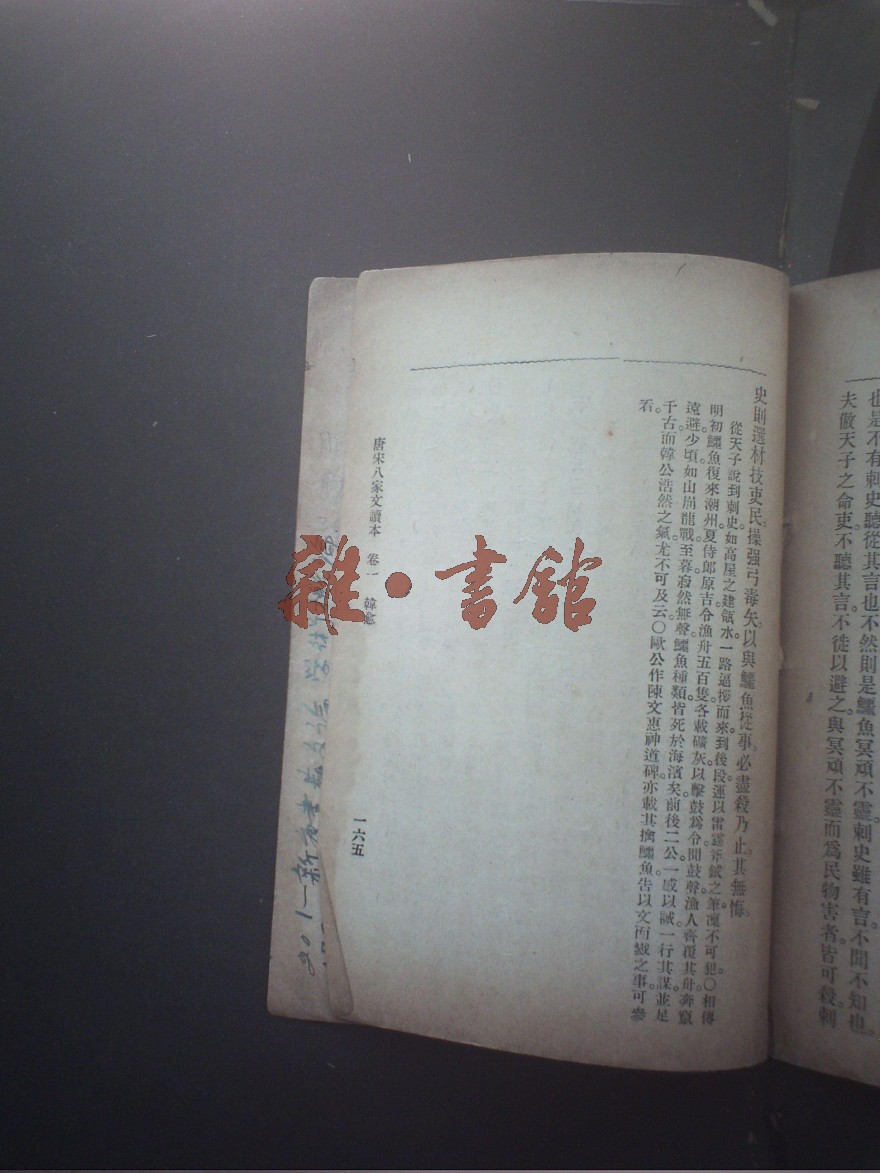 也是不有刺史聽從其言也不然則是鱷魚冥頑不靈刺史雖有言不聞不知也。
夫傲天子之命吏不聽其言不徒以避之與冥頑不靈而爲民物害者皆可殺刺
史則選材技吏民操强弓毒矢以與鱷魚從事必盡殺乃止其無悔。
從天子說到刺史如高屋之建瓴水一路逼拶而來到後段運以雷霆斧鉞之筆凜不可犯。〇相傳
明初鱷魚復來潮州夏侍郎原吉令漁舟五百隻各載礦灰以擊鼓爲令聞鼓聲漁人齊覆其舟奔竄
遠避。少頃如山崩龍戰至暮寂然無聲鱷魚種類皆死於海濱矣前後二公一感以誠一行其謀並足
千古而韓公浩然之氣尤不可及云〇歐公作陳文惠神道碑亦載其擒鱷魚告以文而戮之事可參
看。
唐宋八家文讀本 卷一 韓愈
一六五
雜·書館